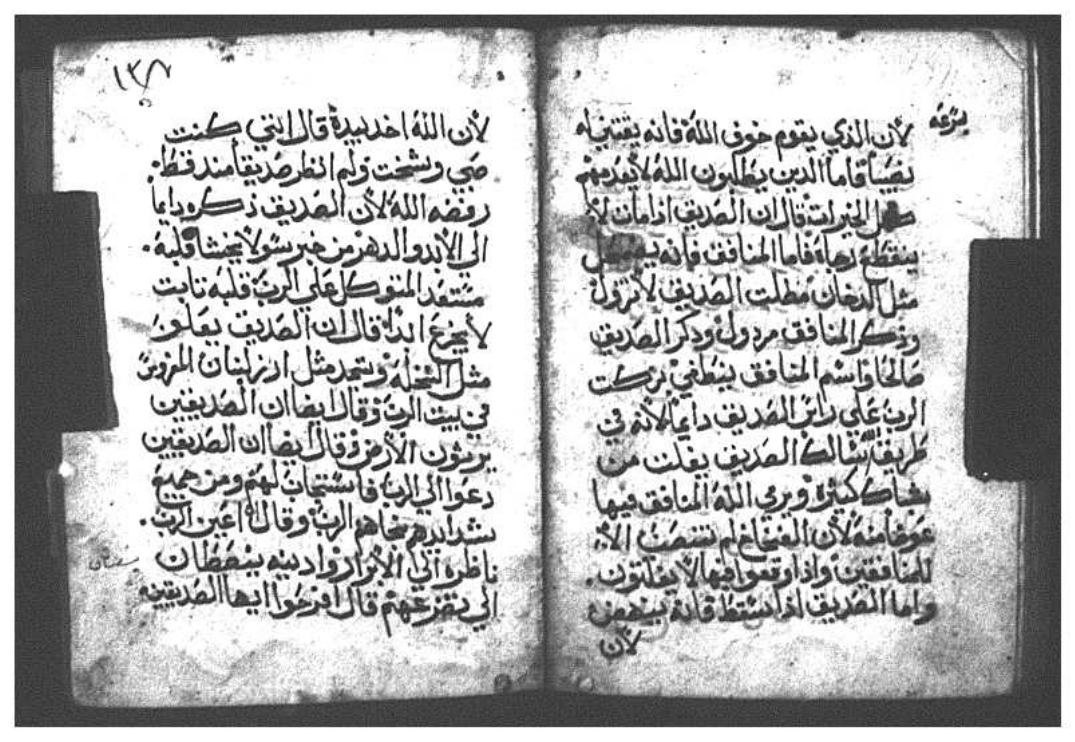 بسرعه
لأن الذي يقوم خوف الله فانه يقتنياه
فاما الدين يطلبون الله لا يعدمهم
كل الخيرات قال ان الصديق ادا مات لا
ينقطع رجاه فاما المنافق فانه
مثل الدخان مطلت الصديق لا تزول
وذكر المنافق مردول ودكر الصديق
صالحا واسم المنافق ينطفي بركت
الرب على راس الصديق دايما لانه في
طريقا سالك الصديق يفلت من
شباك كثيرة ويرمى الله المنافق فيها
عوضا منه لأن الفخاخ لم تنصب الا
للمنافقين واذا وقعوا فيها لا يفلتون.
واما الصديق اذا سقط فانه ينهض
لأن
١٣٨
لأن الله اخد بيدة قال انني كنت
صبي وشخت ولم انظر صديقا مند قط
رفضه الله لأن الصديق ذكره دايما
الي الأبد والدهر من خبر سولا يخشا قلبه.
مستعد المتوكل على الرب قلبه تابت
لا يجزع ابدا قال ان الصديق يعلوا
مثل النخلة وتتمد مثل ارز لبنان المغروس
في بيت الرب وقال ايضا ان الصديقين
يرثون الأرض وقال ايضا ان الصديقين
دعوا الي الرب فاستجاب لهم ومن جميع
شدايدهم نجاهم الرب وقال اعين الرب.
ناظره الي الأبرار وادنيه ينصطان
الي تضرعهم قال افرحوا ايها الصديقين